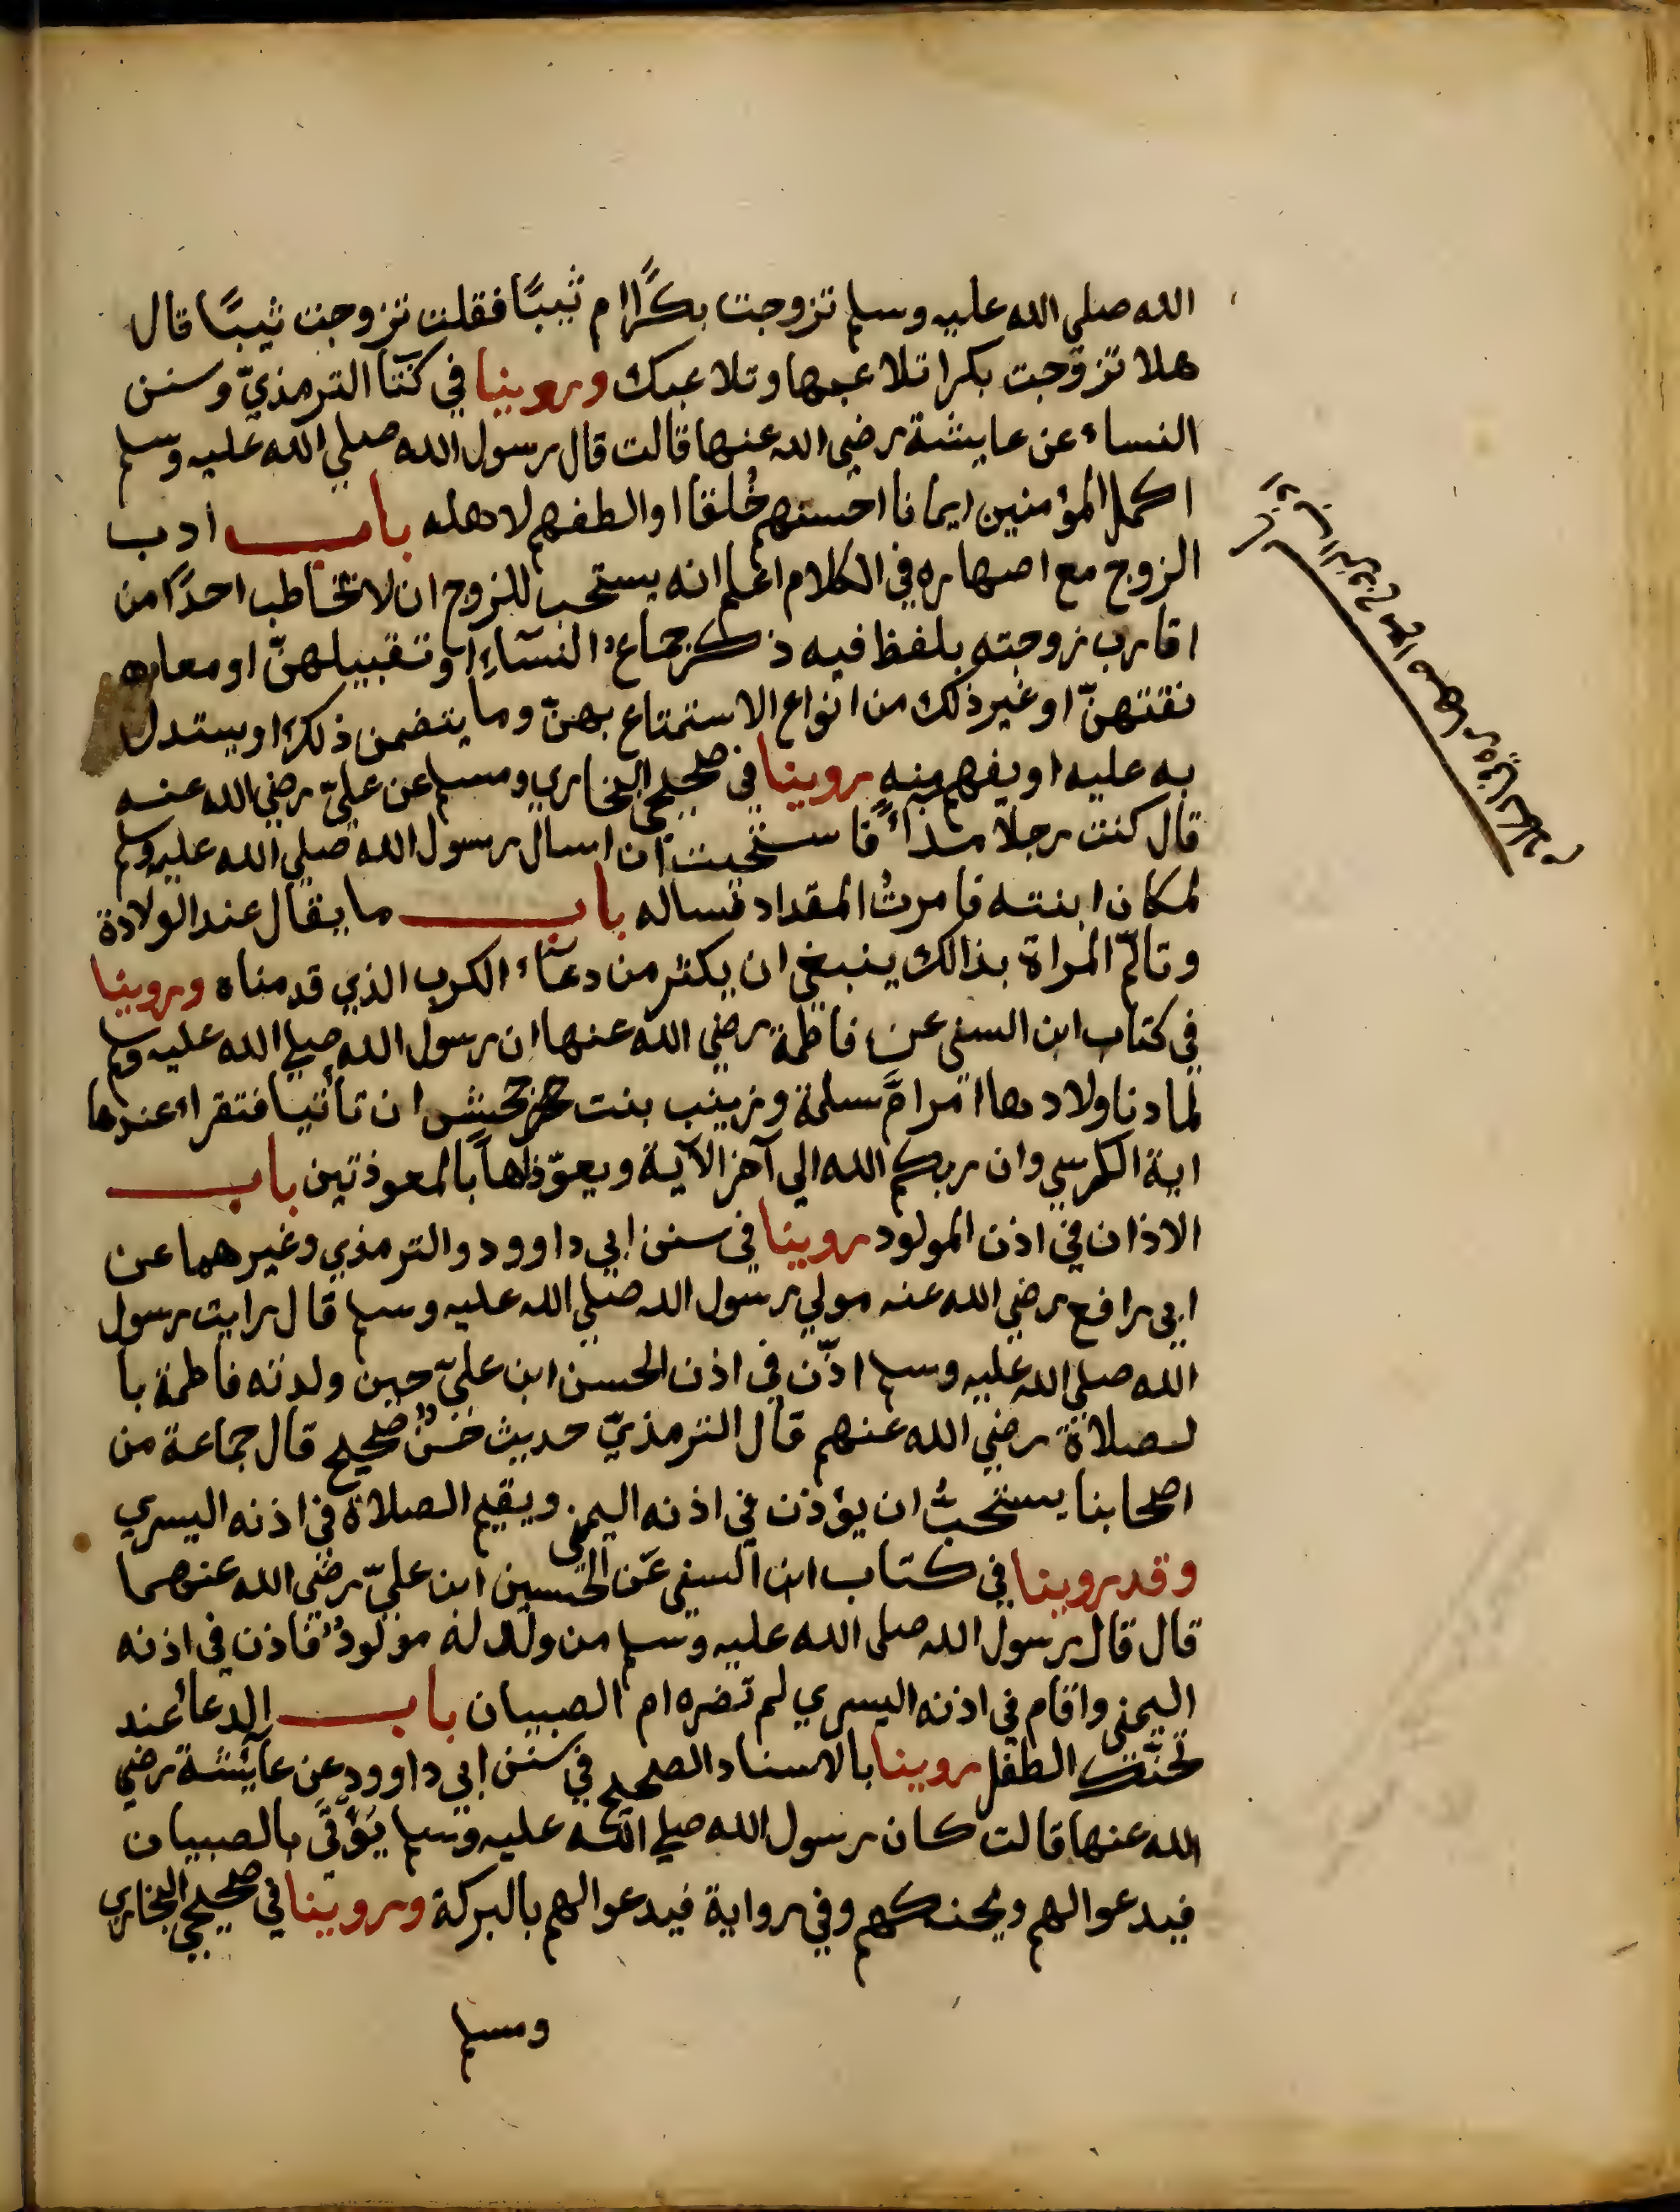 الله صلي الله عليه وسلم تزوجت بكرًا ام ثيبًا فقلت تزوجت ثيبًا قال
هلا تزوّجت بكرا تلاعبها وتلاعبك وروينا في كتا الترمذيّ وسنن
النساء عن عايشة رضي الله عنها قالت قال رسول الله صلي الله عليه وسلم
اكمل المؤمنين ايمانا احسنهم خُلقا والطفهم لاهله باب ادب
الزوج مع اصهاره في الكلام اعلم انه يستحب للزوج ان لا يخاطب احدًا من
اقارب زوجته بلفظ فيه ذكر جماع النسآءِ او تقبيلهنّ او معا
نقتهنّ او غير ذلك من انواع الاستمتاع بهنّ وما يتضمن ذلك او يستدل
به عليه او يفهم منه روينا في صحيحي البخاري ومسلم عن عليّ رضي الله عنه
قال كنت رجلا مذاءً فاستحيت ان اسال رسول الله صلي الله عليه وسلم
لمكان ابنته فامرتُ المقداد فساله باب ما يقال عند الولادة
وتالّم المراة بذالك ينبغي ان يكثر من دعاء الكرب الذي قدمناه وروينا
في كتاب ابن السني عن فاطمة رضي الله عنها ان رسول الله صلي الله عليه وسلم
لما دنا ولادها امر امّ سلمة وزينب بنت جحش ان تأتيا فتقراء عندها
اية الكرسي وان ربكم الله الي آخر الآية ويعوّذاها بالمعوذتين باب
الاذان في اذن المولود روينا في سنن ابي داوود والترمذي وغيرهما عن
ابي رافع رضي الله عنه مولي رسول الله صلي الله عليه وسلم قال رايت رسول
الله صلي الله عليه وسلم اذّن في اذن الحسن ابن عليّ حين ولدته فاطمة با
لصلاة رضي الله عنهم قال الترمذيّ حديث حسنٌ صحيح قال جماعة من
اصحابنا يستحبُ ان يؤذن في اذنه اليمني ويقيم الصلاة في اذنه اليسري
وقد روينا في كتاب ابن السني عن الحسين ابن عليّ رضي الله عنهما
قال قال رسول الله صلي الله عليه وسلم من ولد له مولودٌ فاذن في اذنه
اليمني واقام في اذنه اليسري لم تضره ام الصبيان باب الدعا عند
تحنّك الطفل روينا بالاسناد الصحيح في سنن ابي داوود عن عآئشة رضي
الله عنها قالت كان رسول الله صلي الله عليه وسلم يؤتي بالصبيان
فيدعوا لهم ويحنكهم وفي رواية فيدعوا لهم بالبركة وروينا في صحيحي البخاري
ومسلم